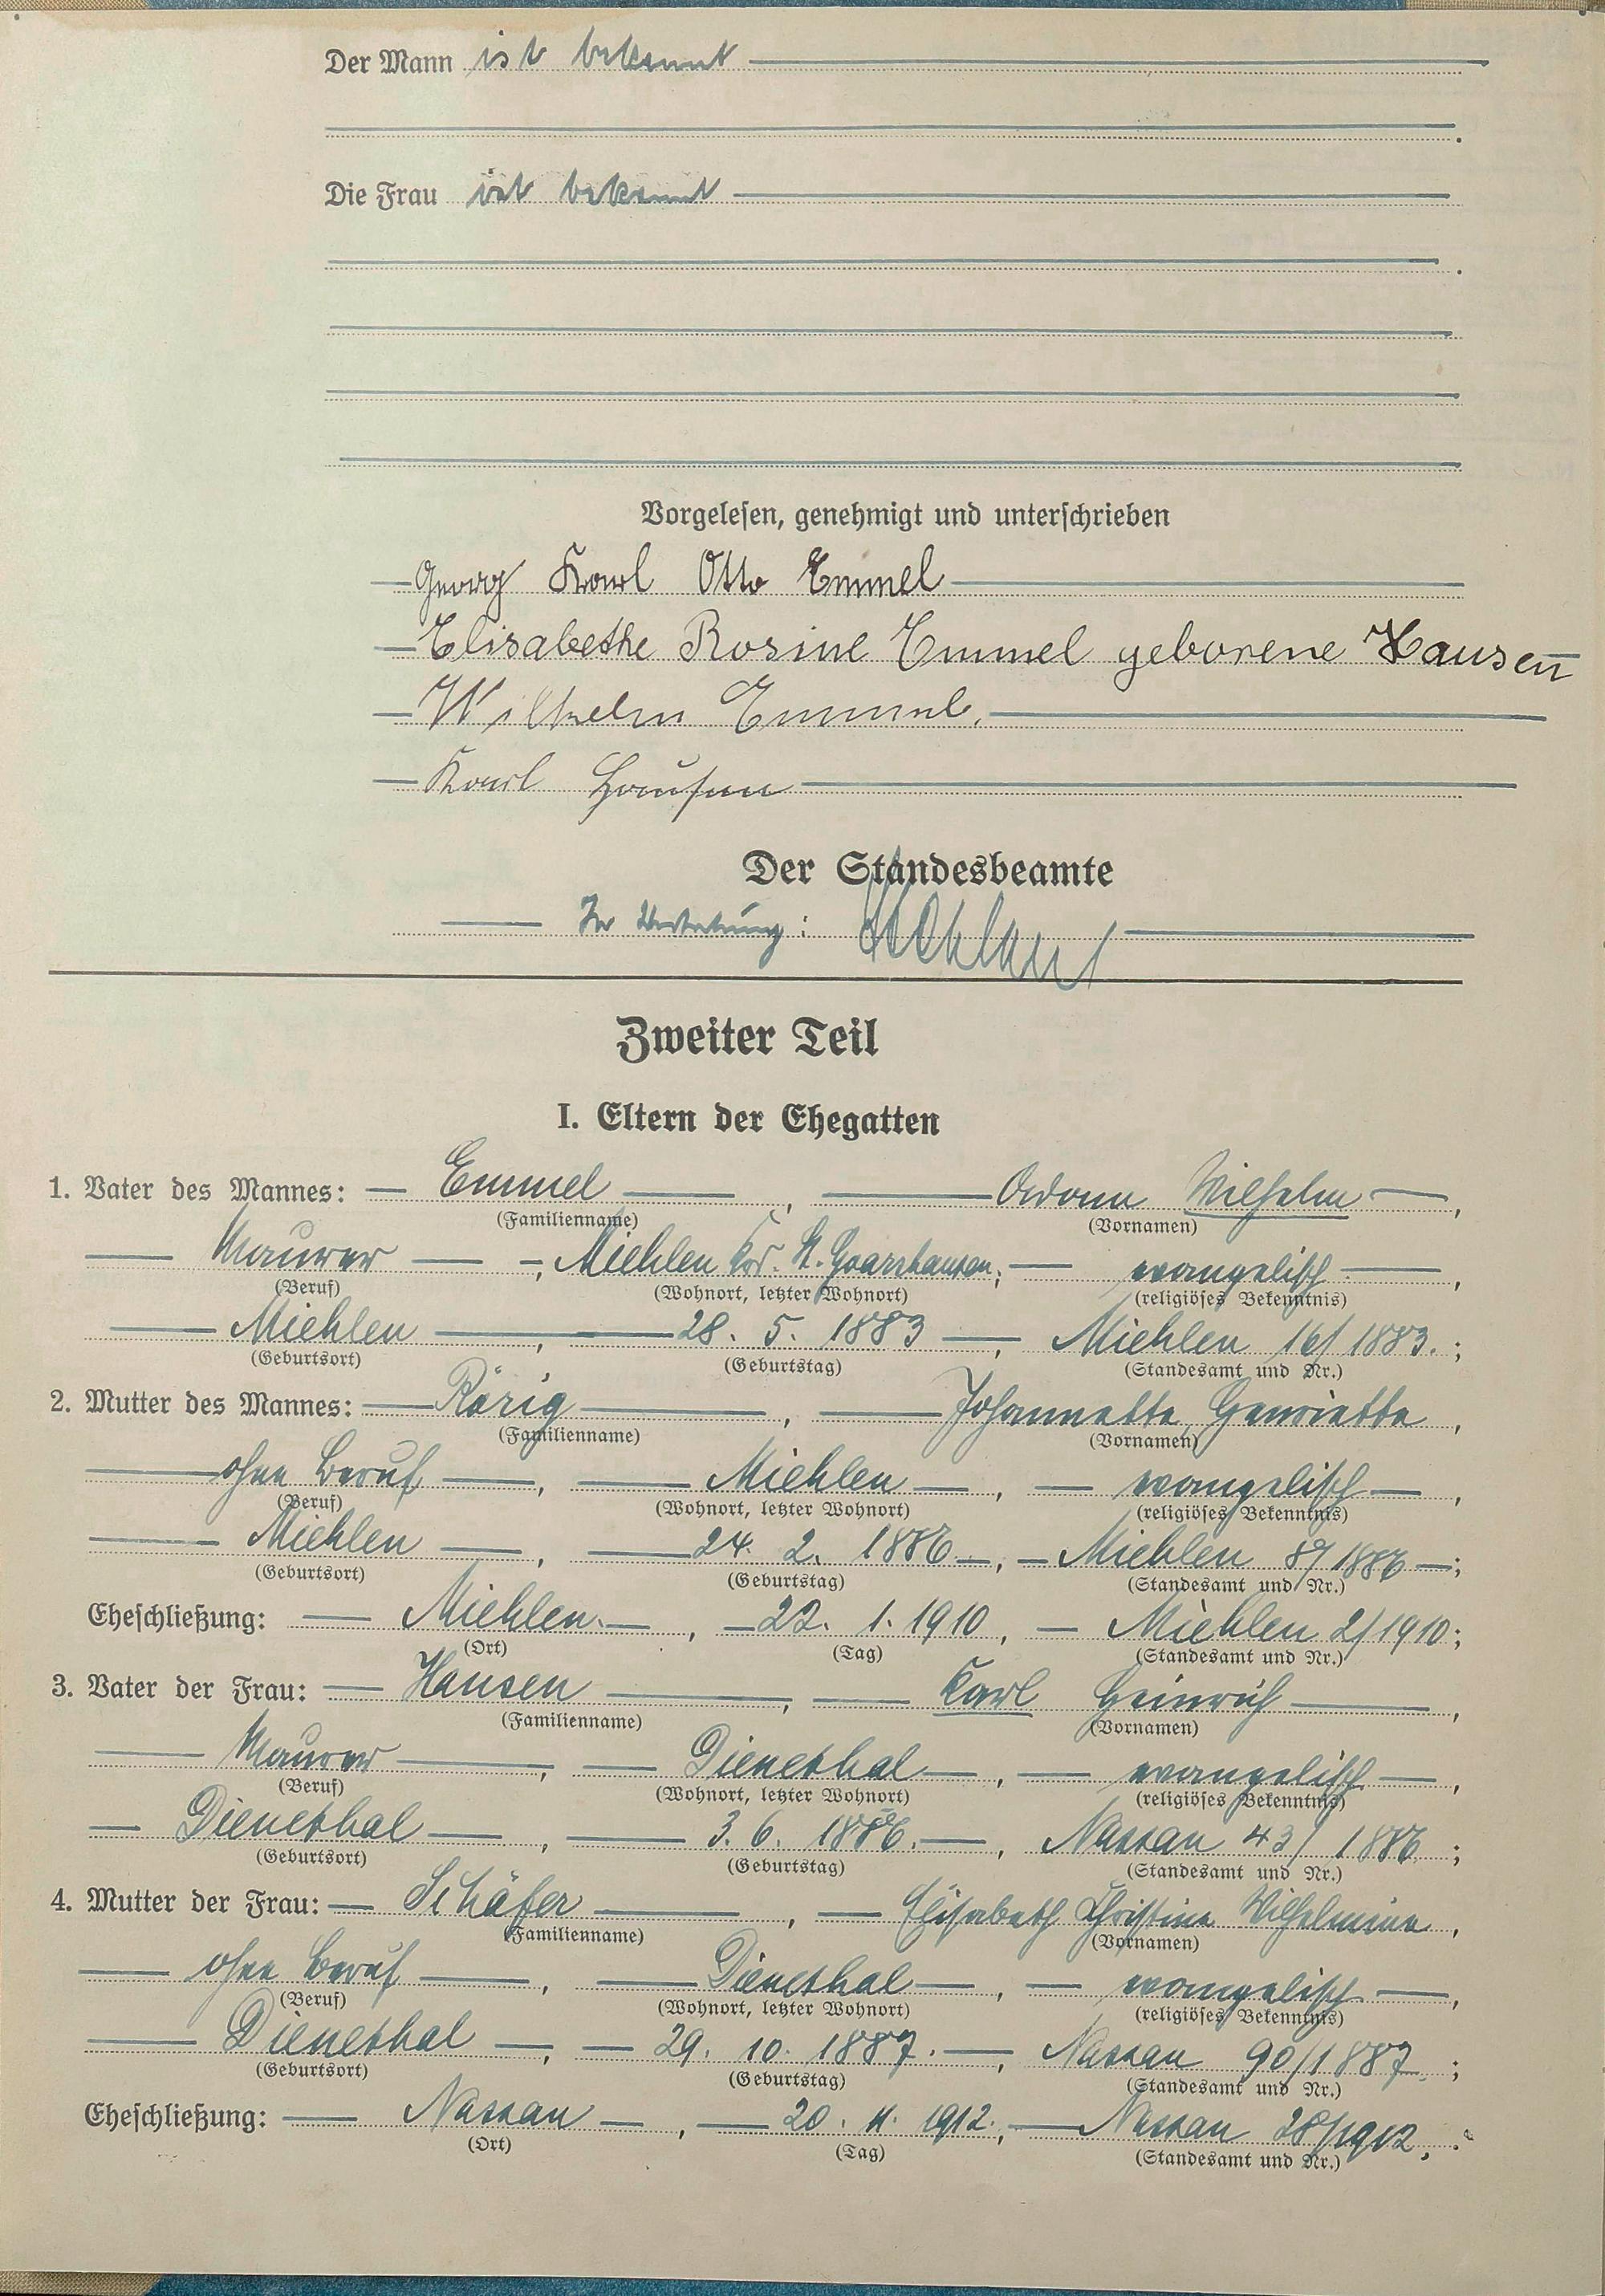 Der Mann ist bekannt
Die Frau ist bekannt
Vorgelesen, genehmigt und unterschrieben
Georg Karl Otto Emmel
Elisabethe Rosine Emmel geborene Hausen
Wilhelm Emmel.
Karl Hausen
Der Standesbeamte
In Vertretung:
Zweiter Teil
I. Eltern der Ehegatten
1. Vater des Mannes: Emmel, Adam Wilhelm,
(Familienname) (Vornamen)
Maurer, Miehlen Krs. St. Goarshausen, evangelisch,
(Beruf) (Wohnort, letzter Wohnort) (religiöses Bekenntnis)
Miehlen, 28. 5. 1883, Miehlen 16/1883.;
(Geburtsort) (Geburtstag) (Standesamt und Nr.)
2. Mutter des Mannes: Rörig, Johannette Henriette,
(Familienname) (Vornamen)
ohne Beruf, Miehlen, evangelisch,
(Beruf) (Wohnort, letzter Wohnort) (religiöses Bekenntnis)
Miehlen, 24. 2. 1886, Miehlen 1886;
(Geburtsort) (Geburtstag) (Standesamt und Nr.)
Eheschließung: Miehlen, 22. 1. 1910, Miehlen 2/1910;
(Ort) (Tag) (Standesamt und Nr.)
3. Vater der Frau: Hausen, Karl Heinrich,
(Familienname) (Vornamen)
Maurer, Dienethal, evangelisch,
(Beruf) (Wohnort, letzter Wohnort) (religiöses Bekenntnis)
Dienethal, 3. 6. 1886., Nassau 43/1886;
(Geburtsort) (Geburtstag) (Standesamt und Nr.)
4. Mutter der Frau: Schäfer, Elisabeth Christine Wilhelmine,
(Familienname) (Vornamen)
ohne Beruf, Dienethal, evangelisch,
(Beruf) (Wohnort, letzter Wohnort) (religiöses Bekenntnis)
Dienethal, 29. 10. 1887., Nassau 90/1887;
(Geburtsort) (Geburtstag) (Standesamt und Nr.)
Eheschließung: Nassau, 20. 1912., Nassau 28/1912.
(Ort) (Tag) (Standesamt und Nr.)